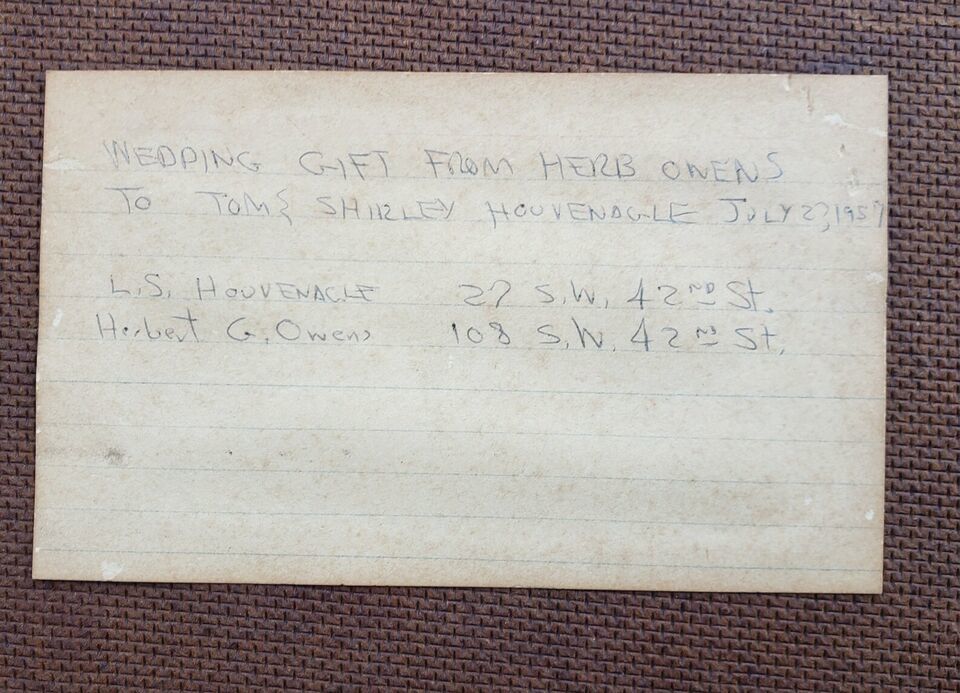 WEDDING GIFT FROM HERB OWENS
TO TOM & SHIRLEY HOUVENAGLE JULY 27, 1957
L.S. HOUVENAGLE 27 S.W. 42ND St.
Herbert G. Owens 108 S.W. 42ND St.